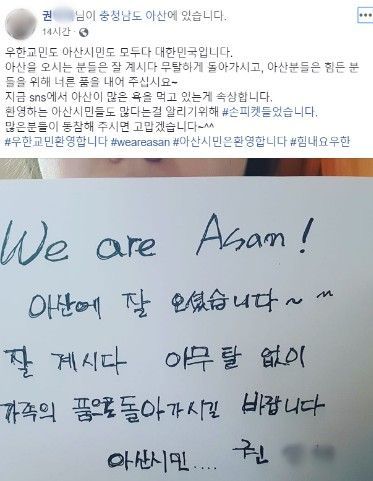 권 님이 충청남도 아산에 있습니다.
14시간
우한교민도 아산시민도 모두다 대한민국입니다.
아산을 오시는 분들은 잘 계시다 무탈하게 돌아가시고, 아산분들은 힘든 분
들을 위해 너른 품을 내어 주십시요~
지금 sns에서 아산이 많은 욕을 먹고 있는게 속상합니다.
환영하는 아산시민들도 많다는걸 알리기위해 #손피켓들었습니다.
많은분들이 동참해 주시면 고맙겠습니다~^^
#우한교민환영합니다 #weareasan #아산시민은환영합니다 #힘내요우한
We are Asan!
아산에 잘 오셨습니다~^^
잘 계시다 아무 탈 없이
가족의 품으로 돌아가시길 바랍니다
아산시민....